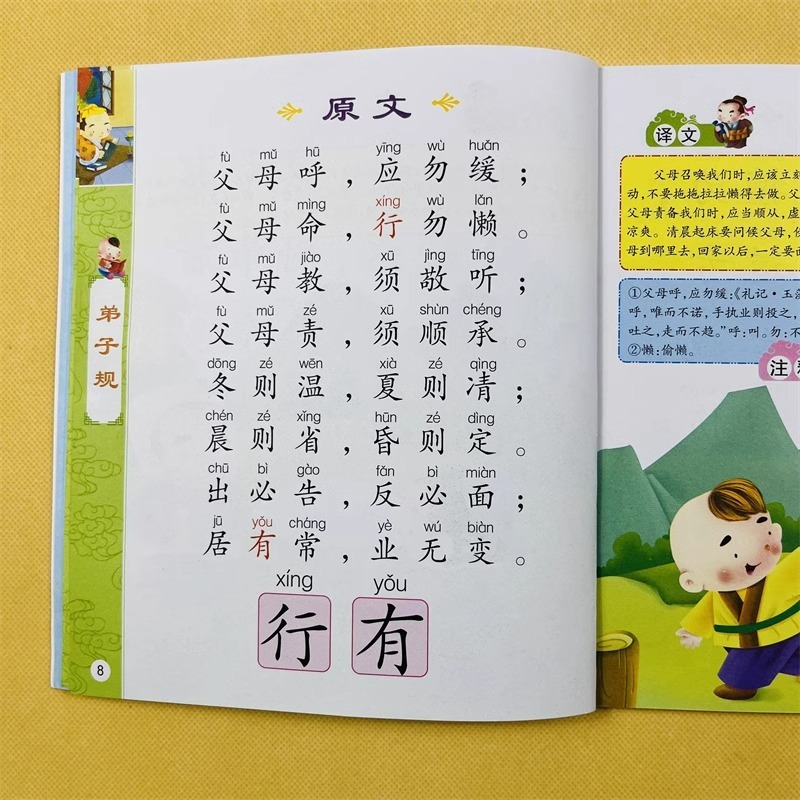 弟子规
原文
fù mǔ hū yīng wù huǎn
父母呼，应勿缓；
fù mǔ mìng xíng wù lǎn
父母命，行勿懒。
fù mǔ jiào xū jìng tīng
父母教，须敬听；
fù mǔ zé xū shùn chéng
父母责，须顺承。
dōng zé wēn xià zé qìng
冬则温，夏则凊；
chén zé xǐng hūn zé dìng
晨则省，昏则定。
chū bì gào fǎn bì miàn
出必告，反必面；
jū yǒu cháng yè wú biàn
居有常，业无变。
xíng yǒu
行 有
8
译文
父母召唤我们时，应该立刻
动，不要拖拖拉拉懒得去做。父
父母责备我们时，应当顺从，虚
凉爽。清晨起床要问候父母，
母到哪里去，回家以后，一定要
①父母呼，应勿缓：《礼记·玉
呼，唯而不诺，手执业则投之，
吐之，走而不趋。”呼：叫。勿：不
②懒：偷懒。
注